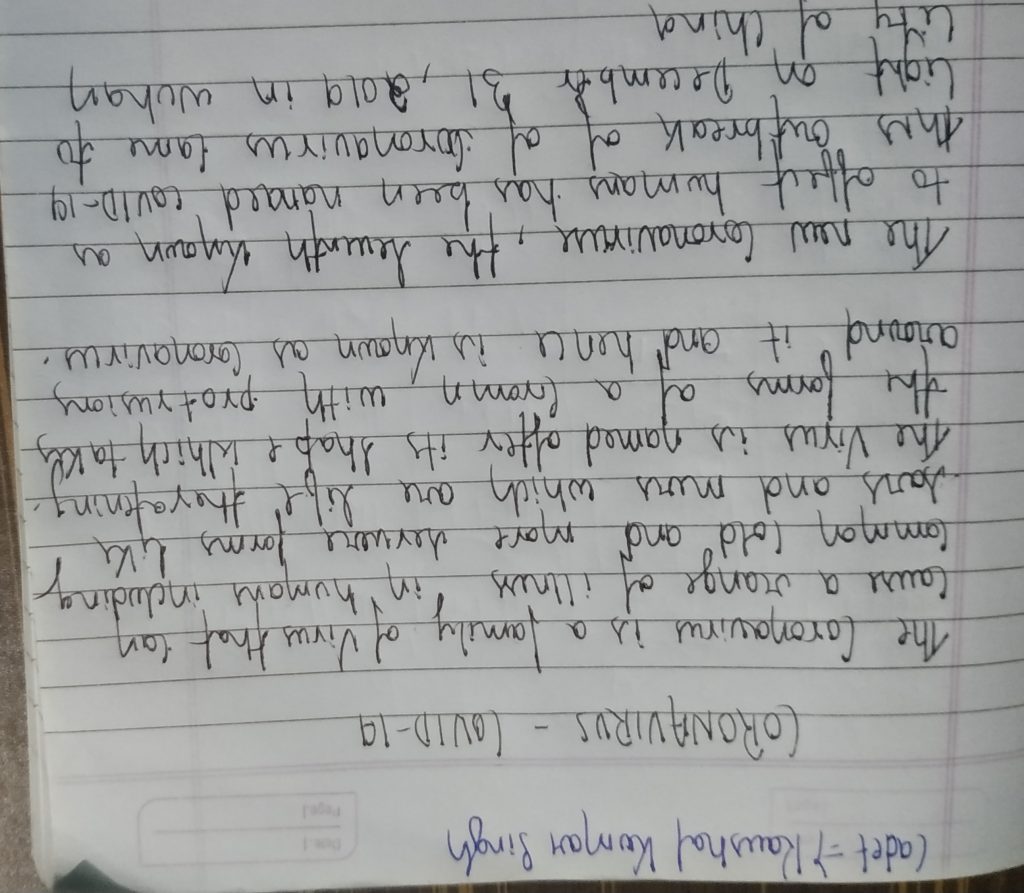 Cadet → Kaushal Kumar Singh
CORONAVIRUS - COVID-19
The Coronavirus is a family of virus that can
cause a range of illness in humans including
common cold and more servere forms like
sars and mers which are life theratning.
The virus is named after its shape which takes
the forms of a Crown with protrusions
around it and hence is known as coronavirus.
The new coronaviruse, the seventh known as
to affect humans has been named COVID-19
this outbreak of of coronavirus came to
light on December 31, 2019 in wuhan
city of china